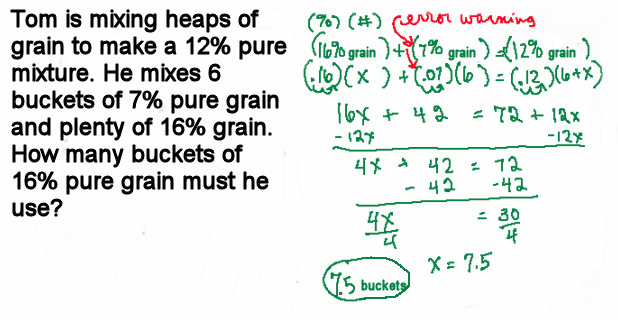 Tom is mixing heaps of
grain to make a 12% pure
mixture. He mixes 6
buckets of 7% pure grain
and plenty of 16% grain.
How many buckets of
16% pure grain must he
use?
(%) (#) error warning
(16% grain) + (7% grain) = (12% grain)
(.16)(x) + (.07)(6) = (.12)(6+x)
16x + 42 = 72 + 12x
-12x -12x
4x + 42 = 72
- 42 -42
4x = 30
4 4
x = 7.5
7.5 buckets